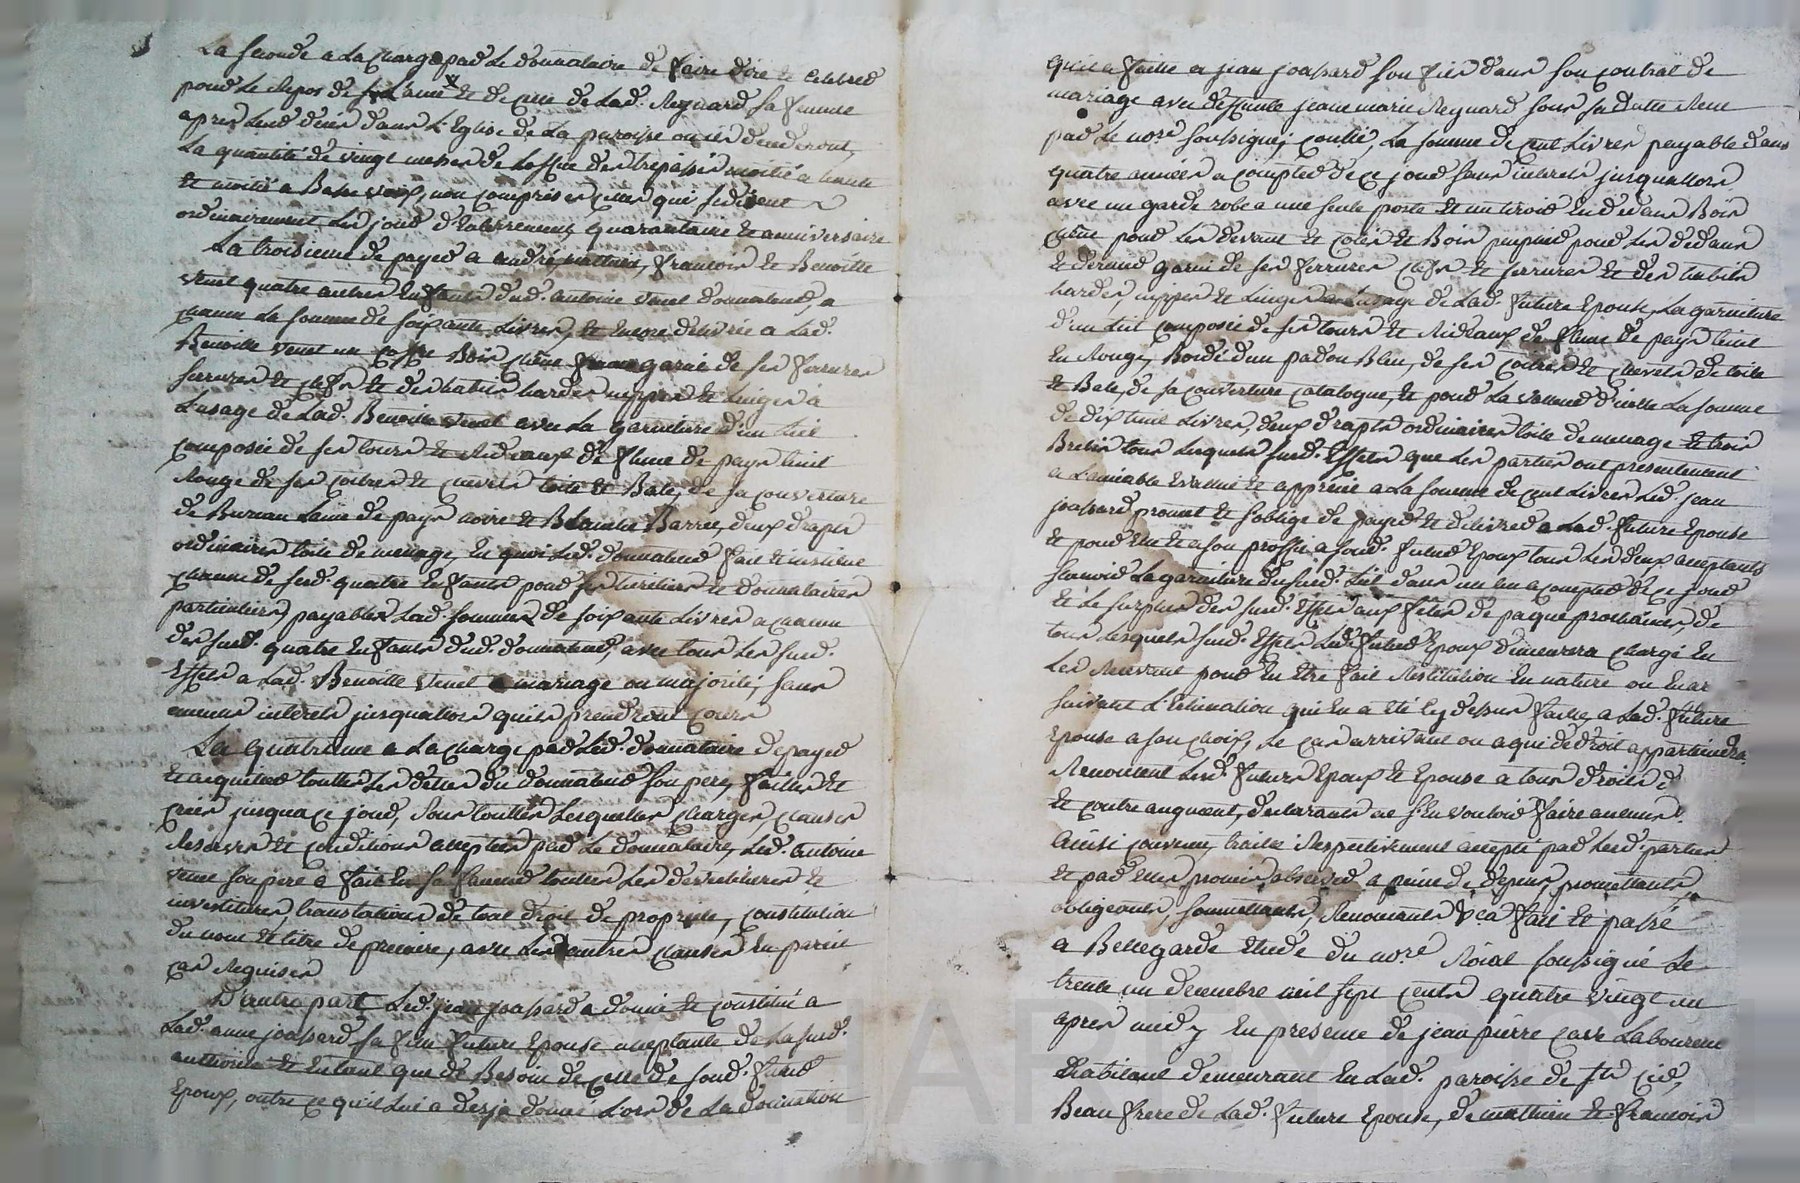 La seconde a La charge par Le donnataire de faire dire et celebrer
pour Le Repos de son L'ame et de celle de Lad. Reynard sa femme
apres Leurd deces dans L'Eglise de La paroisse ou ils decederont,
La quantité de vingt messes de L'office des trepassés moitié a haute
et moitié a Basse voix, non comprises celles qui se disent
ordinairement Les jour d'Enterrement, quarantaine et anniversaire
La troisieme de payer a andré, mathieu, francois et Benoitte
venet quatre autres Enfants dud. antoine venet donnateur, a
chacun La somme de soixante Livres, et Encore delivrer a Lad.
Benoitte venet un coffre Bois chêne garni de ses ferrures
serrures et clefs et des habits hardes nippes et Linges a
L'usage de Lad. Benoitte venet avec La garniture d'un Lict
composée de ses tours et Rideaux de fleuret de pays teint
Rouge de ses coitres et chevets toile et Bale, de sa couverture
de Bureau Laine de pays noire et Blanche Barrée, deux draps
ordinaires toile de menage, En quoi Led. donnateur fait et institue
chacun de sesd. quatre Enfants pour ses heritiers et donnataires
particuliers, payables Lad. somme de soixante Livres a chacun
des susd. quatre Enfants dud. donnateur, avec tous Les susd.
Effets a Lad. Benoitte venet a mariage ou majorité, sans
aucuns interets jusqualors quils prendront cours
La quatrieme a La charge par Led. donnataire de payer
et acquitter touttes Les dettes du donnateur son pere, faittes et
crées jusqua ce jour, Sous touttes Lesquelles charges, clauses
Reserves et conditions acceptées par Le donnataire, Led. antoine
venet son pere a fait En sa faveur touttes Les devestitures et
investitures, translations de tout droit de proprieté, constitution
du nom et titre de precaire, avec Les autres clauses En pareil
cas Requises
D'autre part Led. jean joassard a donné et constitué a
Lad. anne joassard sa fille future Epouse acceptante de La susd.
authorité et Entant que de Besoin de celle de sond. futur
Epoux, outre ce qu'il Lui a desja donné Lors de La donnation
qu'il a faitte a jean joassard son fils dans son contrat de
mariage avec deffunte jeane marie Reynard sous sa datte Receu
par Le nore soussigné, controllé, La somme de cent Livres payable dans
quatre années a compter de ce jour sans interets jusqualors
avec un garde robe a une seule porte et un tiroir En dedans Bois
chêne pour Les devant et cotés et Bois sappin pour Les dedans
et derrier garni de ses ferrures clefs et serrures et des habits
hardes, nippes et Linges a L'usage de Lad. future Epouse, La garniture
d'un Lict composée de ses tours et Rideaux de fleuret de pays teint
En Rouge, Bordé d'un padou Bleu, de ses coitres et chevets de toile
et Bale, de sa couverture catalogne, et pour La valleur d'icelle La somme
de dix huit Livres, deux draps ordinaires toile de menage et trois
Brebis tous Lesquels susd. Effets que Les parties ont presentement
a L'amiable Evalué et apprécié a La somme de cent Livres Led. jean
joassard promet et s'oblige de payer et delivrer a Lad. future Epouse
et pour Elle et a son proffit a sond. futur Epoux tous Les deux acceptants
scavoir La garniture du susd. Lit dans un an a compter de ce jour
et Le surplus des susd. Effets aux fetes de paque prochaines, de
tous Lesquels susd. Effets Led. futur Epoux demeurera chargé En
Les Recevant pour En Etre fait Restitution En nature ou En ar
suivant L'Estimation qui En a été cy dessus faitte, a Lad. future
Epouse a son choix, Le cas arrivant ou a qui de droit appartiendra
Renoncent Lesd. futurs Epoux et Epouse a tous droits d
et contre augment, declarants ne s'En vouloir faire aucuns.
Ainsi convenu, traitté Respectivement accepté par Lesd. parties
et par Elles promis observer a peine de depens, promettants,
obligeants, soumettants, Renoncants &ca fait et passé
a Bellegarde Etude du nore Roial soussigné Le
trente un decembre mil sept cents quatre vingt un
apres midy En presence de jean pierre Labouceur
Habitant demeurant En Lad. paroisse de st cir,
Beau frere de Lad. future Epouse, de mathieu et francois